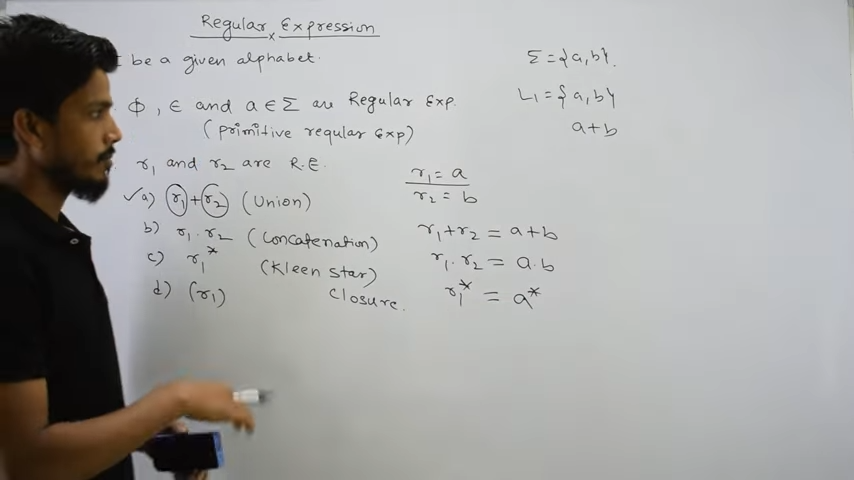 Regular Expression
be a given alphabet.
Φ, ∈ and a ∈ Σ are Regular Exp.
(primitive regular exp)
r₁ and r₂ are R.E.
✓a) r₁ + r₂ (Union)
b) r₁ . r₂ (Concatenation)
c) r₁* (Kleen star)
closure.
d) (r₁)
Σ = {a, b}.
L₁ = {a, b}
a + b
r₁ = a
r₂ = b
r₁ + r₂ = a + b
r₁ . r₂ = a . b
r₁* = a*